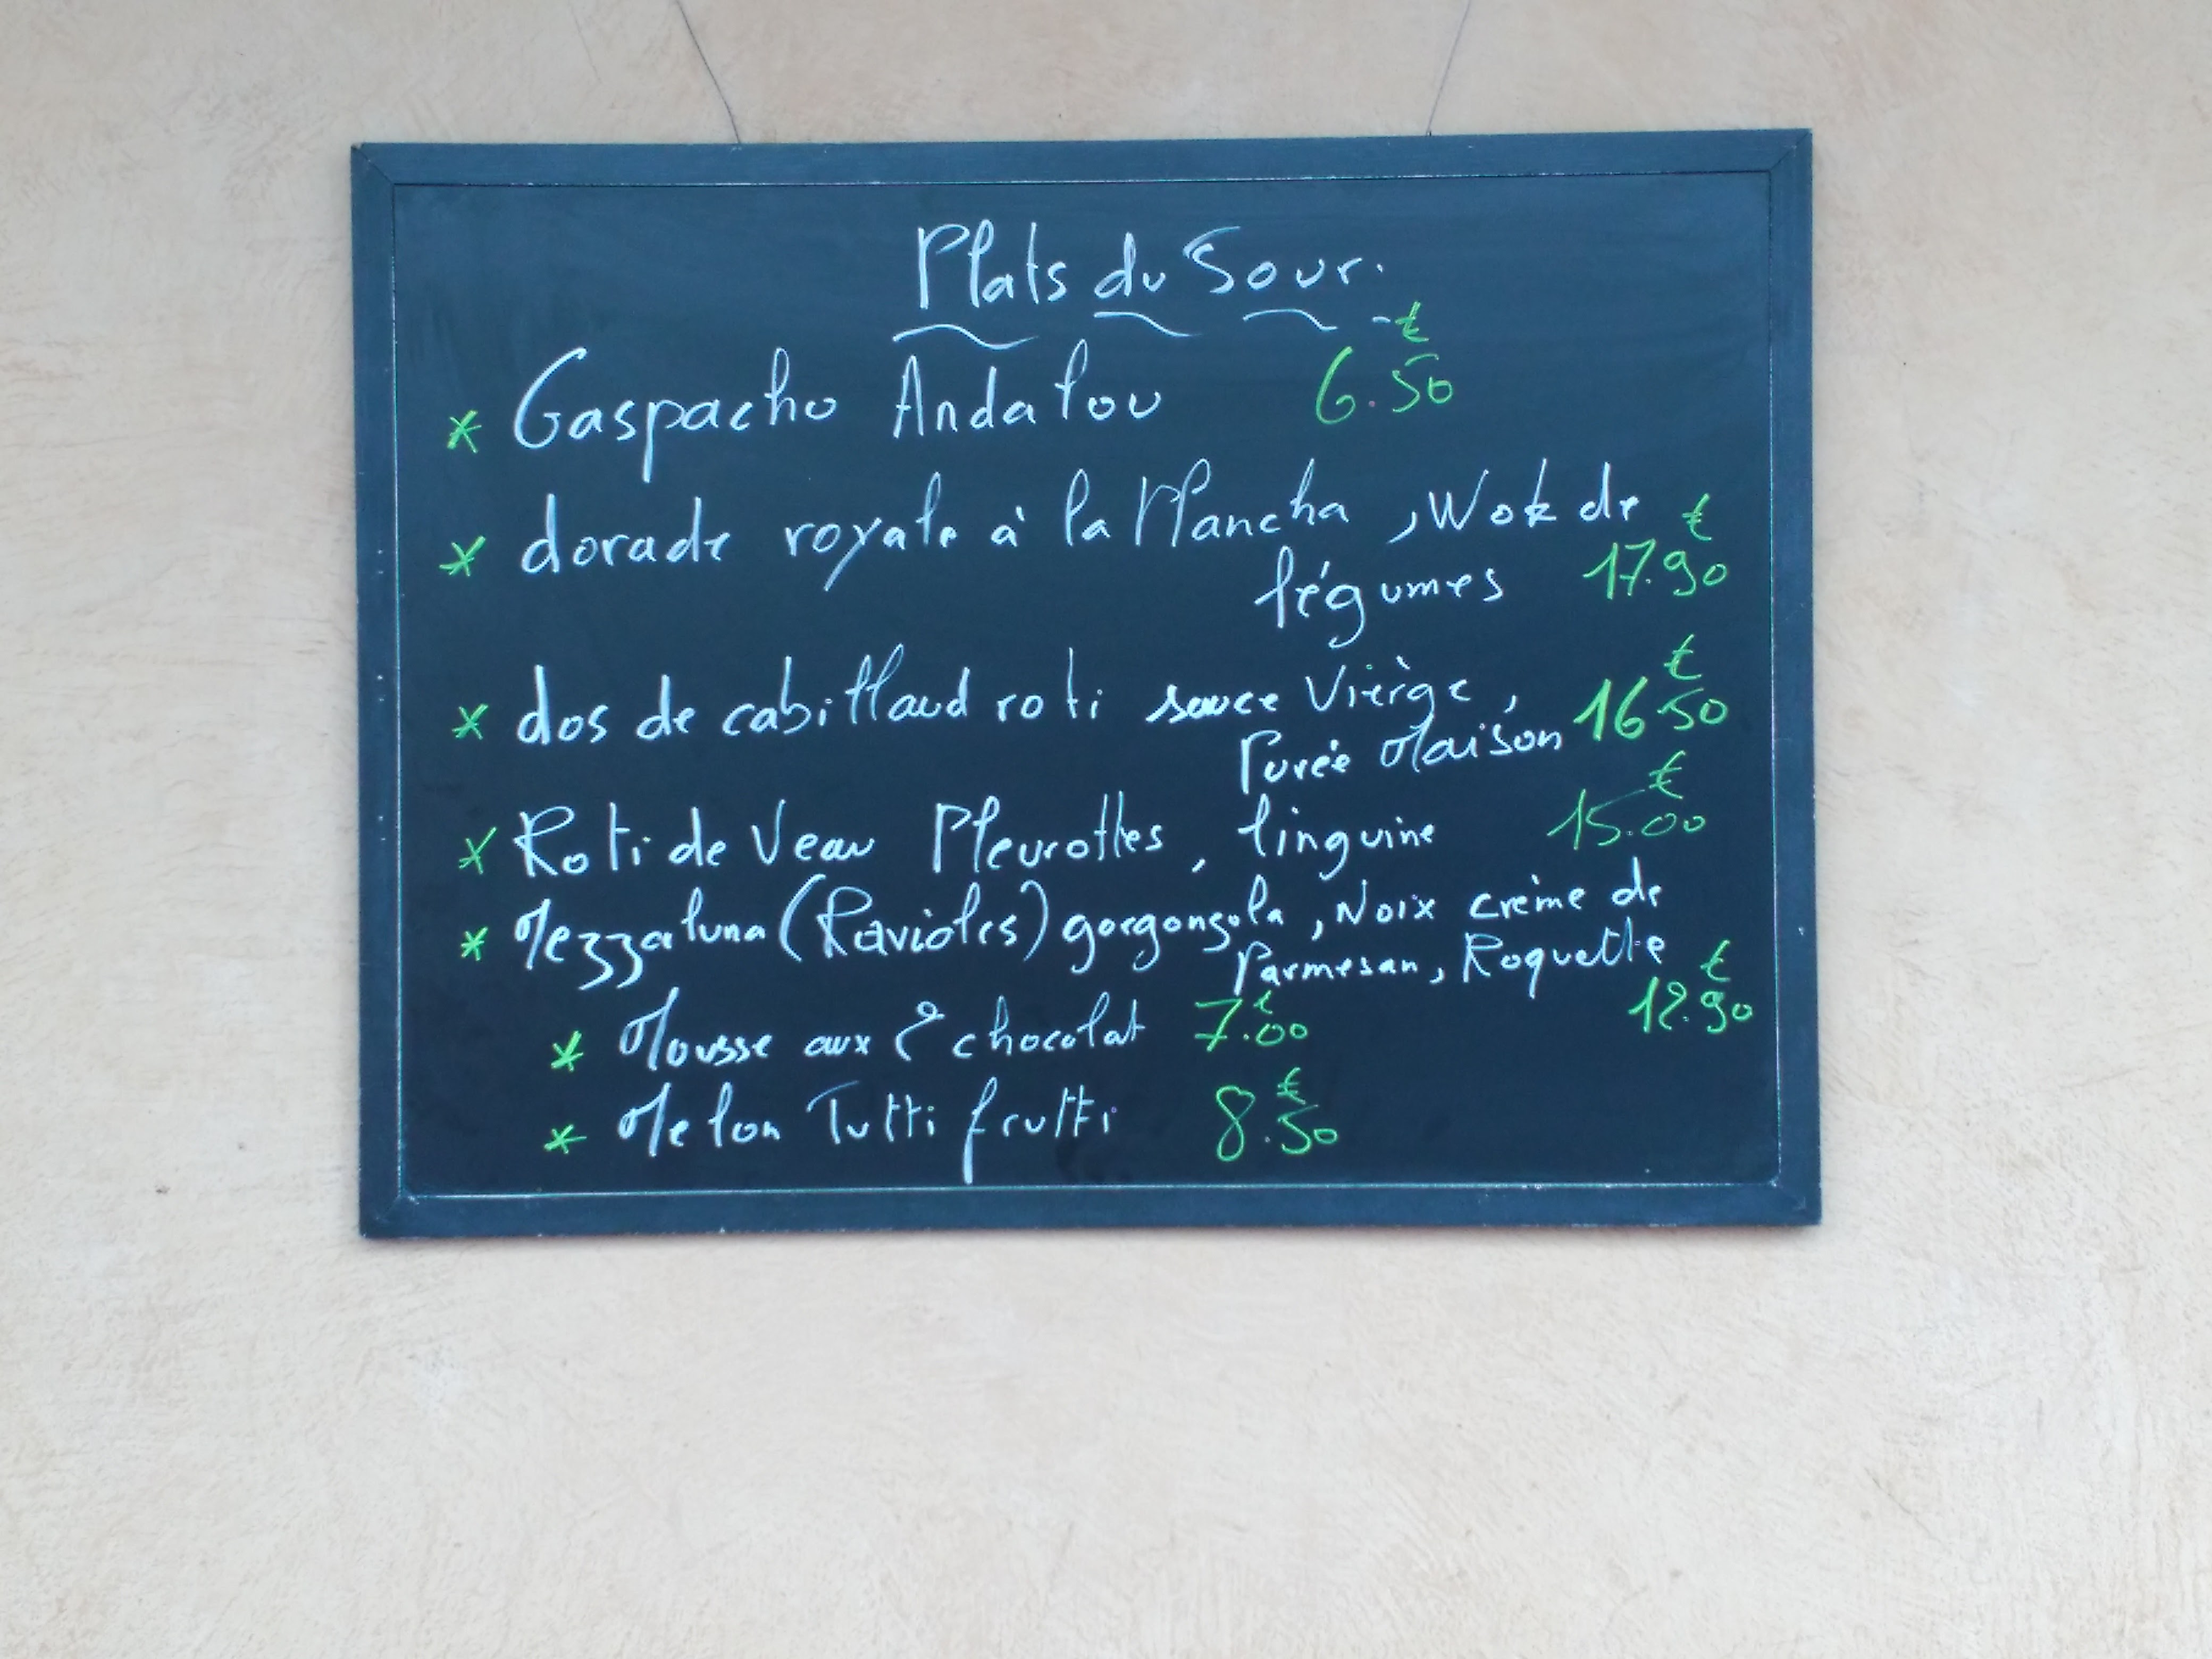 Plats du Jour.
* Gaspacho Andalou 6.50 €
* dorade royale à la Mancha, Wok de
légumes 17.90 €
* dos de cabillaud roti sauce Vièrge,
Purée Maison 16.50 €
* Roti de Veau Pleurottes, linguine 15.00 €
* Mezzaluna (Ravioles) gorgonzola, Noix crème de
Parmesan, Roquette 12.90 €
* Mousse aux 2 chocolat 7.00 €
* Melon Tutti frutti 8.50 €